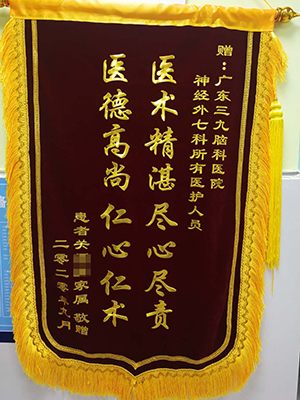 赠：广东三九脑科医院
神经外七科所有医护人员
医术精湛 尽心尽责
医德高尚 仁心仁术
患者关 家属 敬赠
二零二零年九月